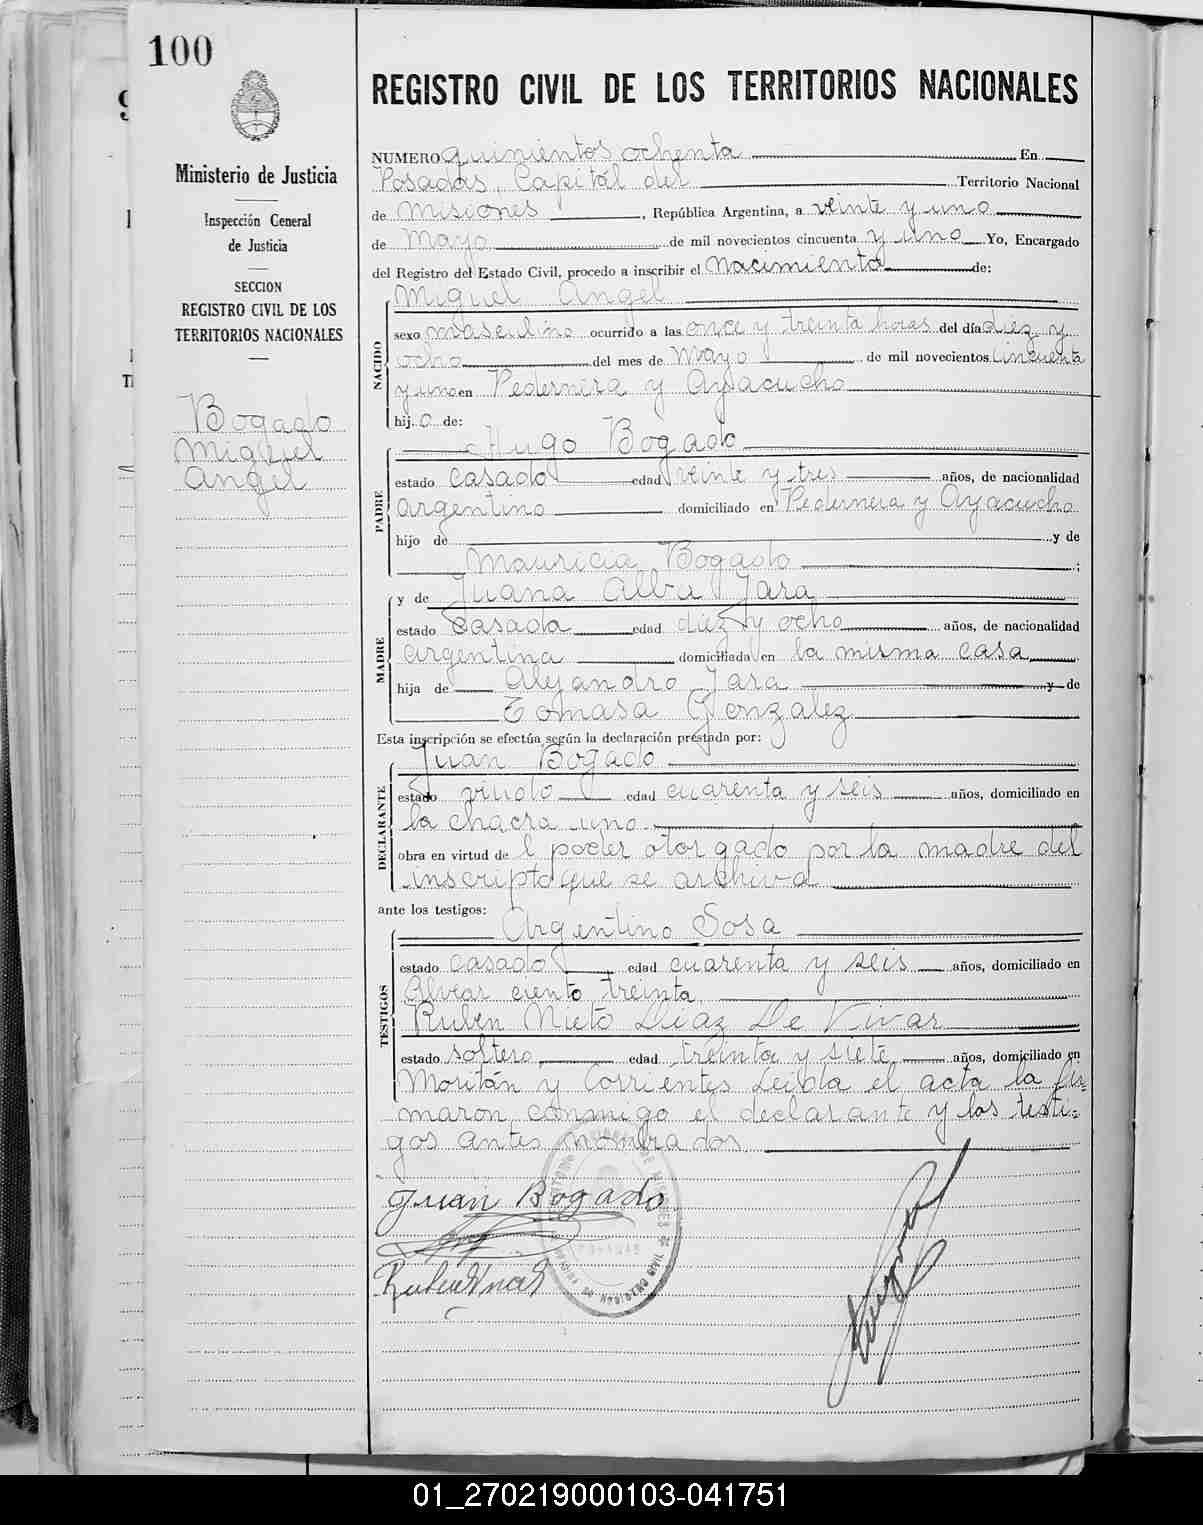 100
Ministerio de Justicia
Inspección General
de Justicia
SECCION
REGISTRO CIVIL DE LOS
TERRITORIOS NACIONALES
Bogado
Miguel
Angel
REGISTRO CIVIL DE LOS TERRITORIOS NACIONALES
NUMERO quinientos ochenta En
Posadas, Capital del Territorio Nacional
de Misiones, República Argentina, a veinte y uno
de Mayo de mil novecientos cincuenta y uno Yo, Encargado
del Registro del Estado Civil, procedo a inscribir el Nacimiento de:
NACIDO
Miguel Angel
sexo masculino ocurrido a las once y treinta horas del día diez y
ocho del mes de Mayo de mil novecientos cincuenta
y uno en Pedernera y Ayacucho
hijo de:
PADRE
Hugo Bogado
estado casado edad veinte y tres años, de nacionalidad
argentino domiciliado en Pedernera y Ayacucho
hijo de y de
Mauricia Bogado ;
MADRE
y de Juana Alba Jara
estado casada edad diez y ocho años, de nacionalidad
argentina domiciliada en la misma casa
hija de Alejandro Jara y de
Tomasa Gonzalez
Esta inscripción se efectúa según la declaración prestada por:
DECLARANTE
Juan Bogado
estado viudo edad cuarenta y seis años, domiciliado en
la chacra uno
obra en virtud de l poder otorgado por la madre del
inscripto que se archiva
ante los testigos:
TESTIGOS
Argentino Sosa
estado casado edad cuarenta y seis años, domiciliado en
Alvear ciento treinta
Ruben Nieto Diaz De Vivar
estado soltero edad treinta y siete años, domiciliado en
Moritán y Corrientes Leida el acta la fir=
maron conmigo el declarante y los testi=
gos antes nombrados.
Juan Bogado
REGISTRO CIVIL
01_270219000103-041751